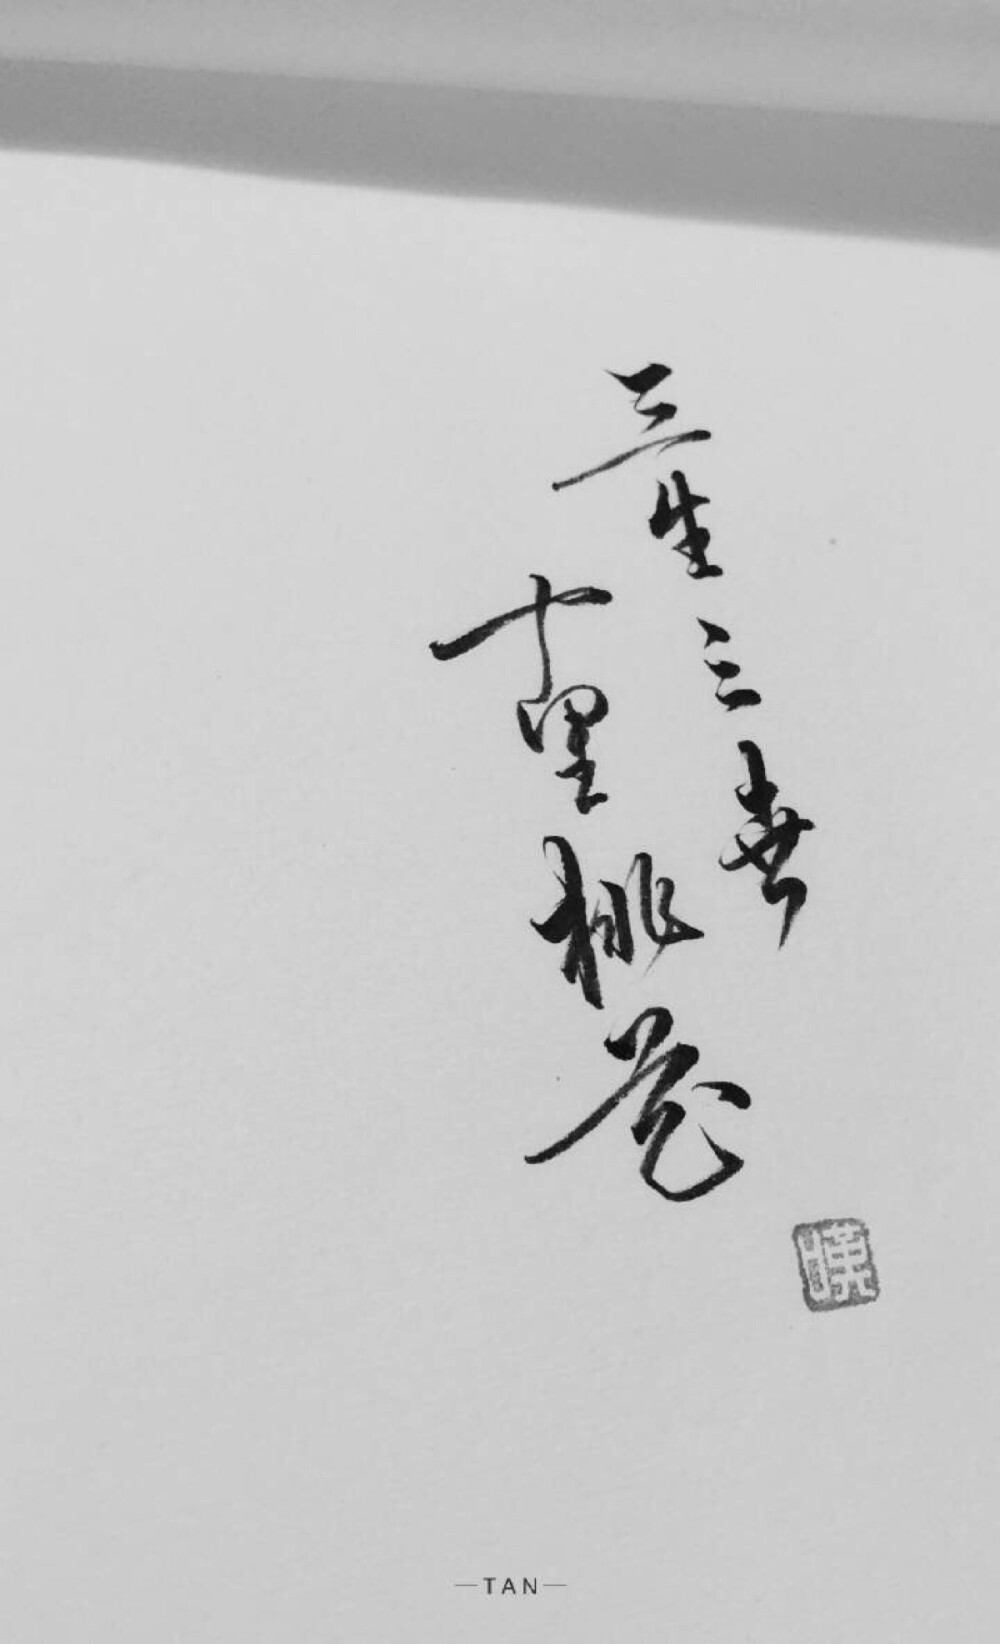 三生三世
十里桃花
嘆
TAN